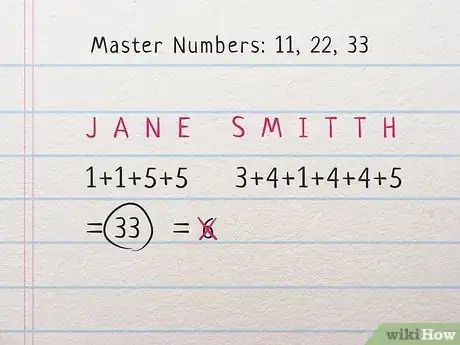 Master Numbers: 11, 22, 33
JANE SMITTH
1+1+5+5 3+4+1+4+4+5
= 33 = 6
wikiHow